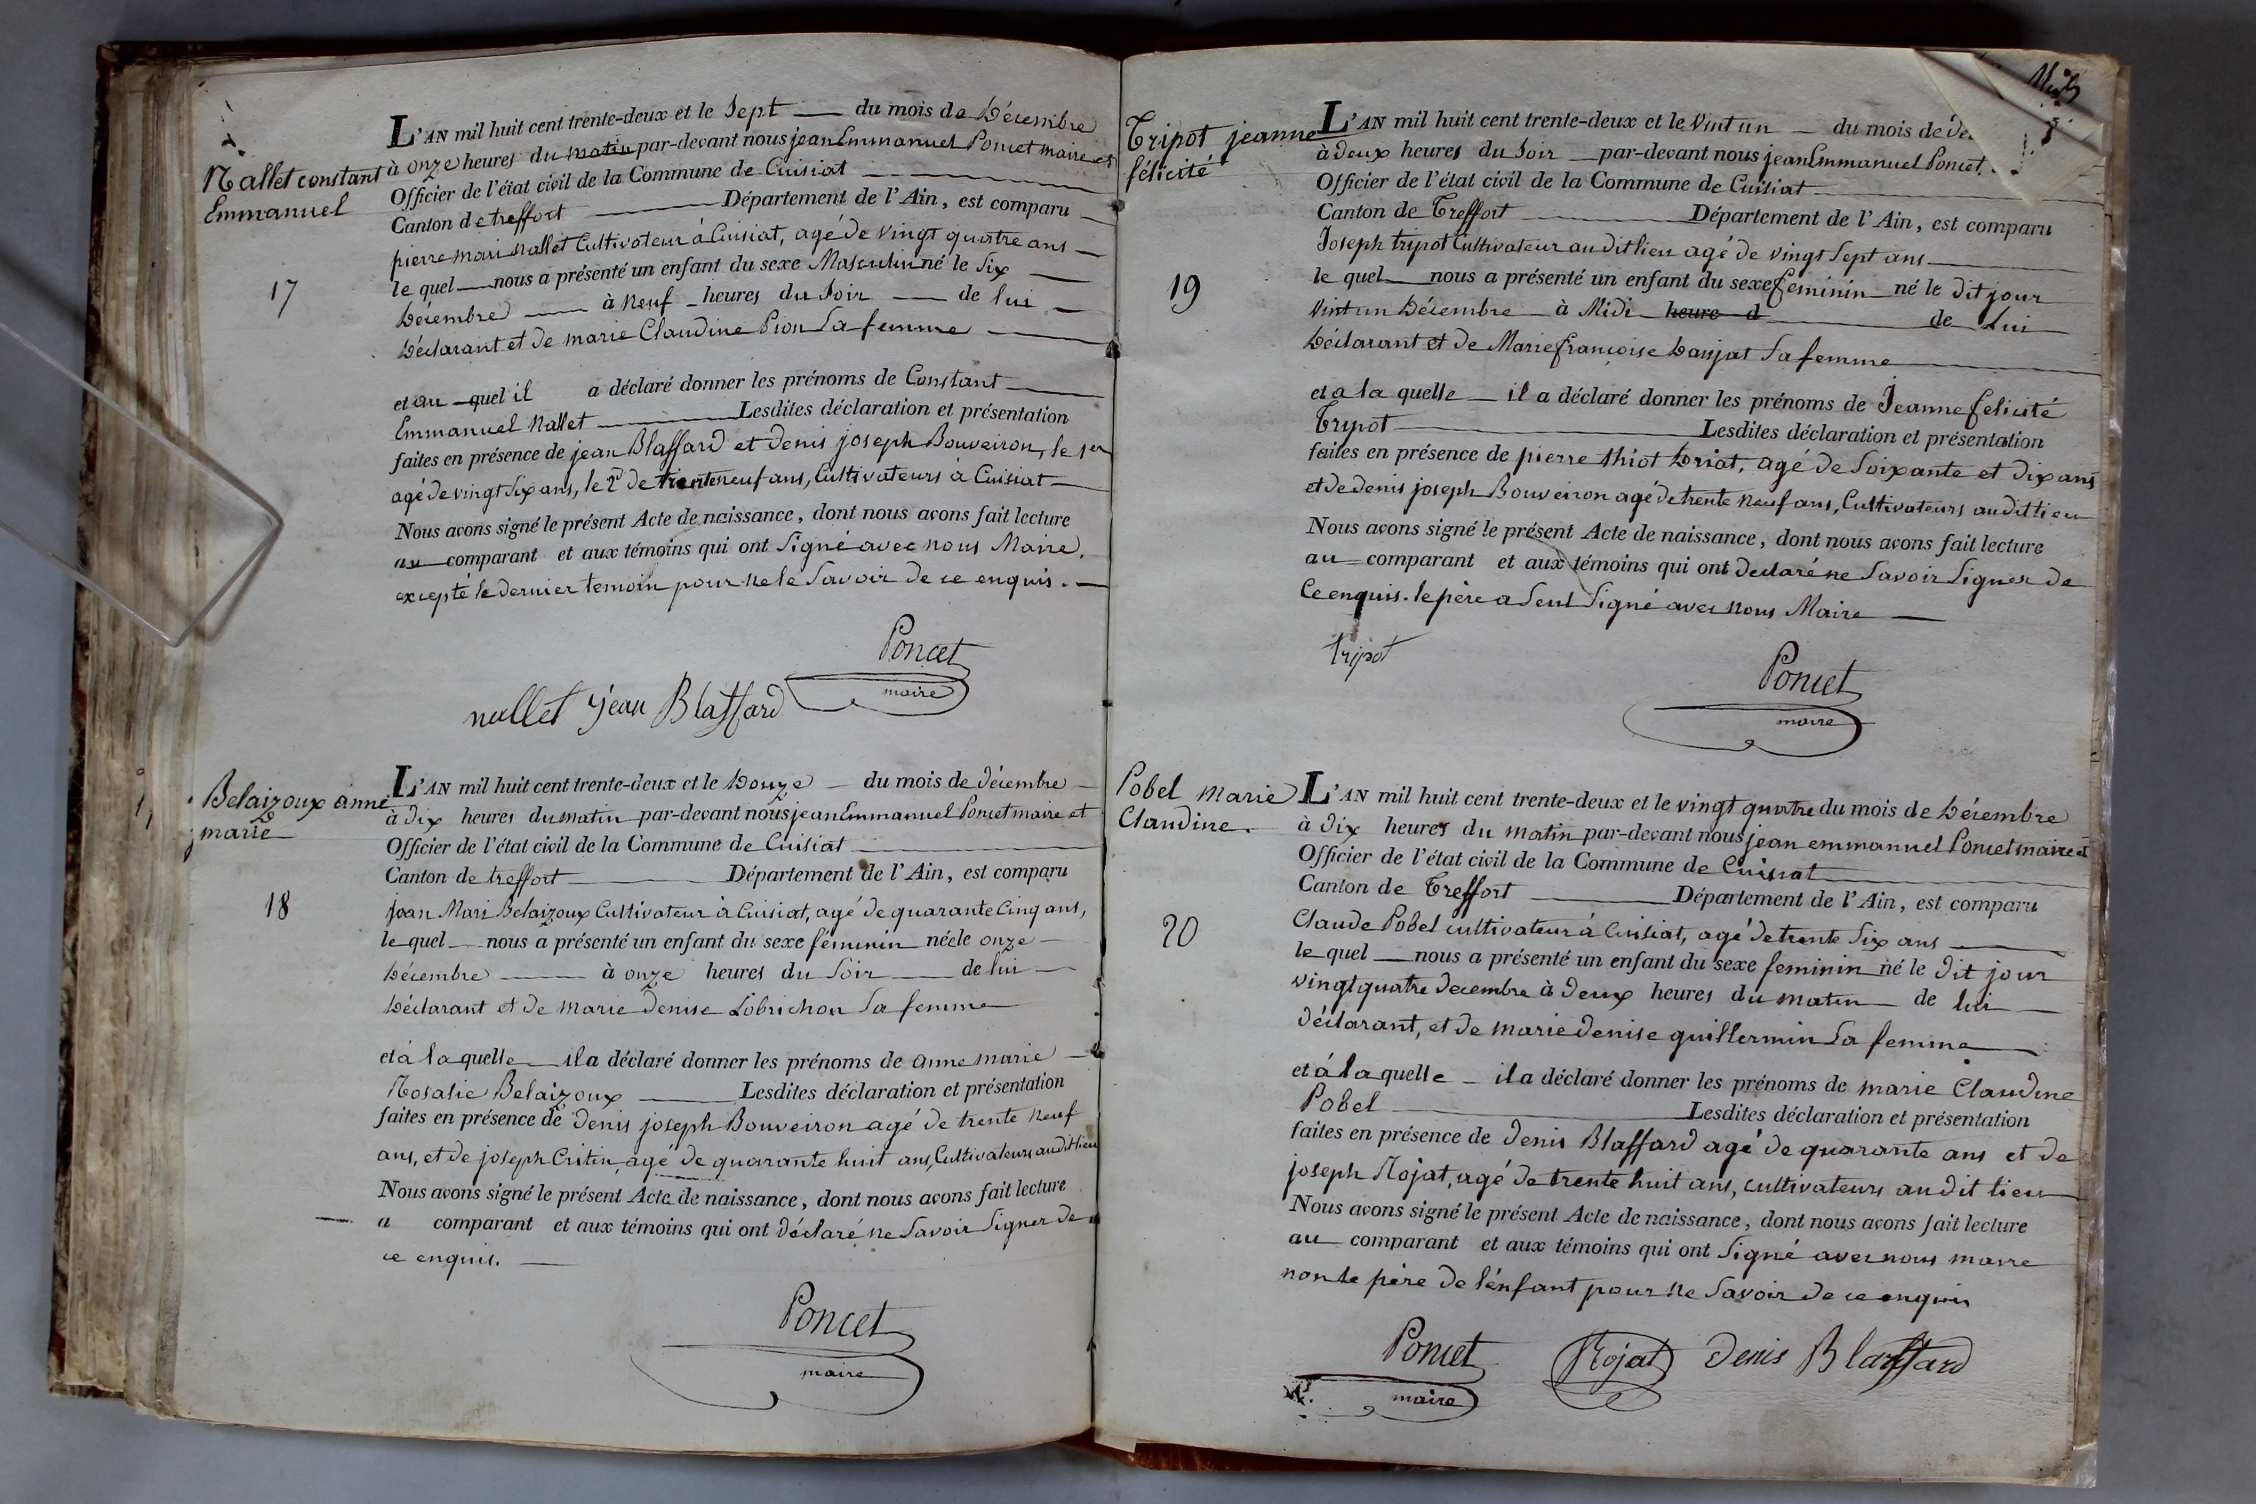 Nallet constant
Emmanuel
17
L'AN mil huit cent trente-deux et le Sept du mois de Décembre
à onze heures du matin par-devant nous jean Emmanuel Poncet maire et
Officier de l'état civil de la Commune de Cuisiat
Canton de treffort Département de l'Ain, est comparu
pierre mari Nallet Cultivateur à Cuisiat, agé de vingt quatre ans
le quel nous a présenté un enfant du sexe Masculin né le Six
Décembre à Neuf heures du Soir de lui
Déclarant et de marie Claudine Pion Sa femme
et au quel il a déclaré donner les prénoms de Constant
Emmanuel Nallet Lesdites déclaration et présentation
faites en présence de jean Blaffard et Denis joseph Bouveiron, le 1er
agé de vingt Six ans, le 2d de trente neuf ans, Cultivateurs à Cuisiat
Nous avons signé le présent Acte de naissance, dont nous avons fait lecture
au comparant et aux témoins qui ont Signé avec nous Maire.
excepté le dernier temoin pour ne le Savoir de ce enquis.
Poncet
maire
nallet jean Blaffard
Belaizoux anne
marie
18
L'AN mil huit cent trente-deux et le Douze du mois de décembre
à Dix heures du matin par-devant nous jean Emmanuel Poncet maire et
Officier de l'état civil de la Commune de Cuisiat
Canton de treffort Département de l'Ain, est comparu
jean Mari Belaizoux Cultivateur à Cuisiat, agé de quarante Cinq ans,
le quel nous a présenté un enfant du sexe féminin née le onze
Décembre à onze heures du Soir de lui
Déclarant et de marie Denise Lobrichon Sa femme
et à la quelle il a déclaré donner les prénoms de anne marie
Rosalie Belaizoux Lesdites déclaration et présentation
faites en présence de Denis joseph Bouveiron agé de trente neuf
ans, et de joseph Critin, agé de quarante huit ans, Cultivateurs au dit lieu
Nous avons signé le présent Acte de naissance, dont nous avons fait lecture
a comparant et aux témoins qui ont déclaré ne Savoir Signer de
ce enquis.
Poncet
maire
Tripot jeanne
félicité
19
L'AN mil huit cent trente-deux et le Vint un du mois de De
à Deux heures du Soir par-devant nous jean Emmanuel Poncet
Officier de l'état civil de la Commune de Cuisiat
Canton de Treffort Département de l'Ain, est comparu
Joseph tripot Cultivateur au dit lieu agé de vingt Sept ans
le quel nous a présenté un enfant du sexe feminin né le dit jour
Vint un Décembre à Midi heure d de Lui
Déclarant et de Marie françoise Danjat Sa femme
et a la quelle il a déclaré donner les prénoms de Jeanne félicité
Tripot Lesdites déclaration et présentation
faites en présence de pierre thiot Driat, agé de Soixante et dix ans
et de denis joseph Bouveiron agé de trente neuf ans, Cultivateurs au dit lieu
Nous avons signé le présent Acte de naissance, dont nous avons fait lecture
au comparant et aux témoins qui ont declaré ne Savoir Signer de
Ce enquis. le père a Seul Signé avec nous Maire
tripot
Poncet
maire
Pobel marie
Claudine.
20
L'AN mil huit cent trente-deux et le vingt quatre du mois de Décembre
à dix heures du matin par-devant nous jean emmanuel Poncet maire et
Officier de l'état civil de la Commune de Cuisiat
Canton de Treffort Département de l'Ain, est comparu
Claude Pobel cultivateur à Cuisiat, agé de trente Six ans
le quel nous a présenté un enfant du sexe feminin né le dit jour
vingt quatre decembre à deux heures du matin de lui
déclarant, et de marie denise guillermin Sa femme
et à la quelle il a déclaré donner les prénoms de marie Claudine
Pobel Lesdites déclaration et présentation
faites en présence de denis Blaffard agé de quarante ans et de
joseph Rojat, agé de trente huit ans, cultivateurs au dit lieu
Nous avons signé le présent Acte de naissance, dont nous avons fait lecture
au comparant et aux témoins qui ont Signé avec nous maire
non le père de l'enfant pour ne Savoir de ce enquis
Poncet Rojat Denis Blaffard
maire